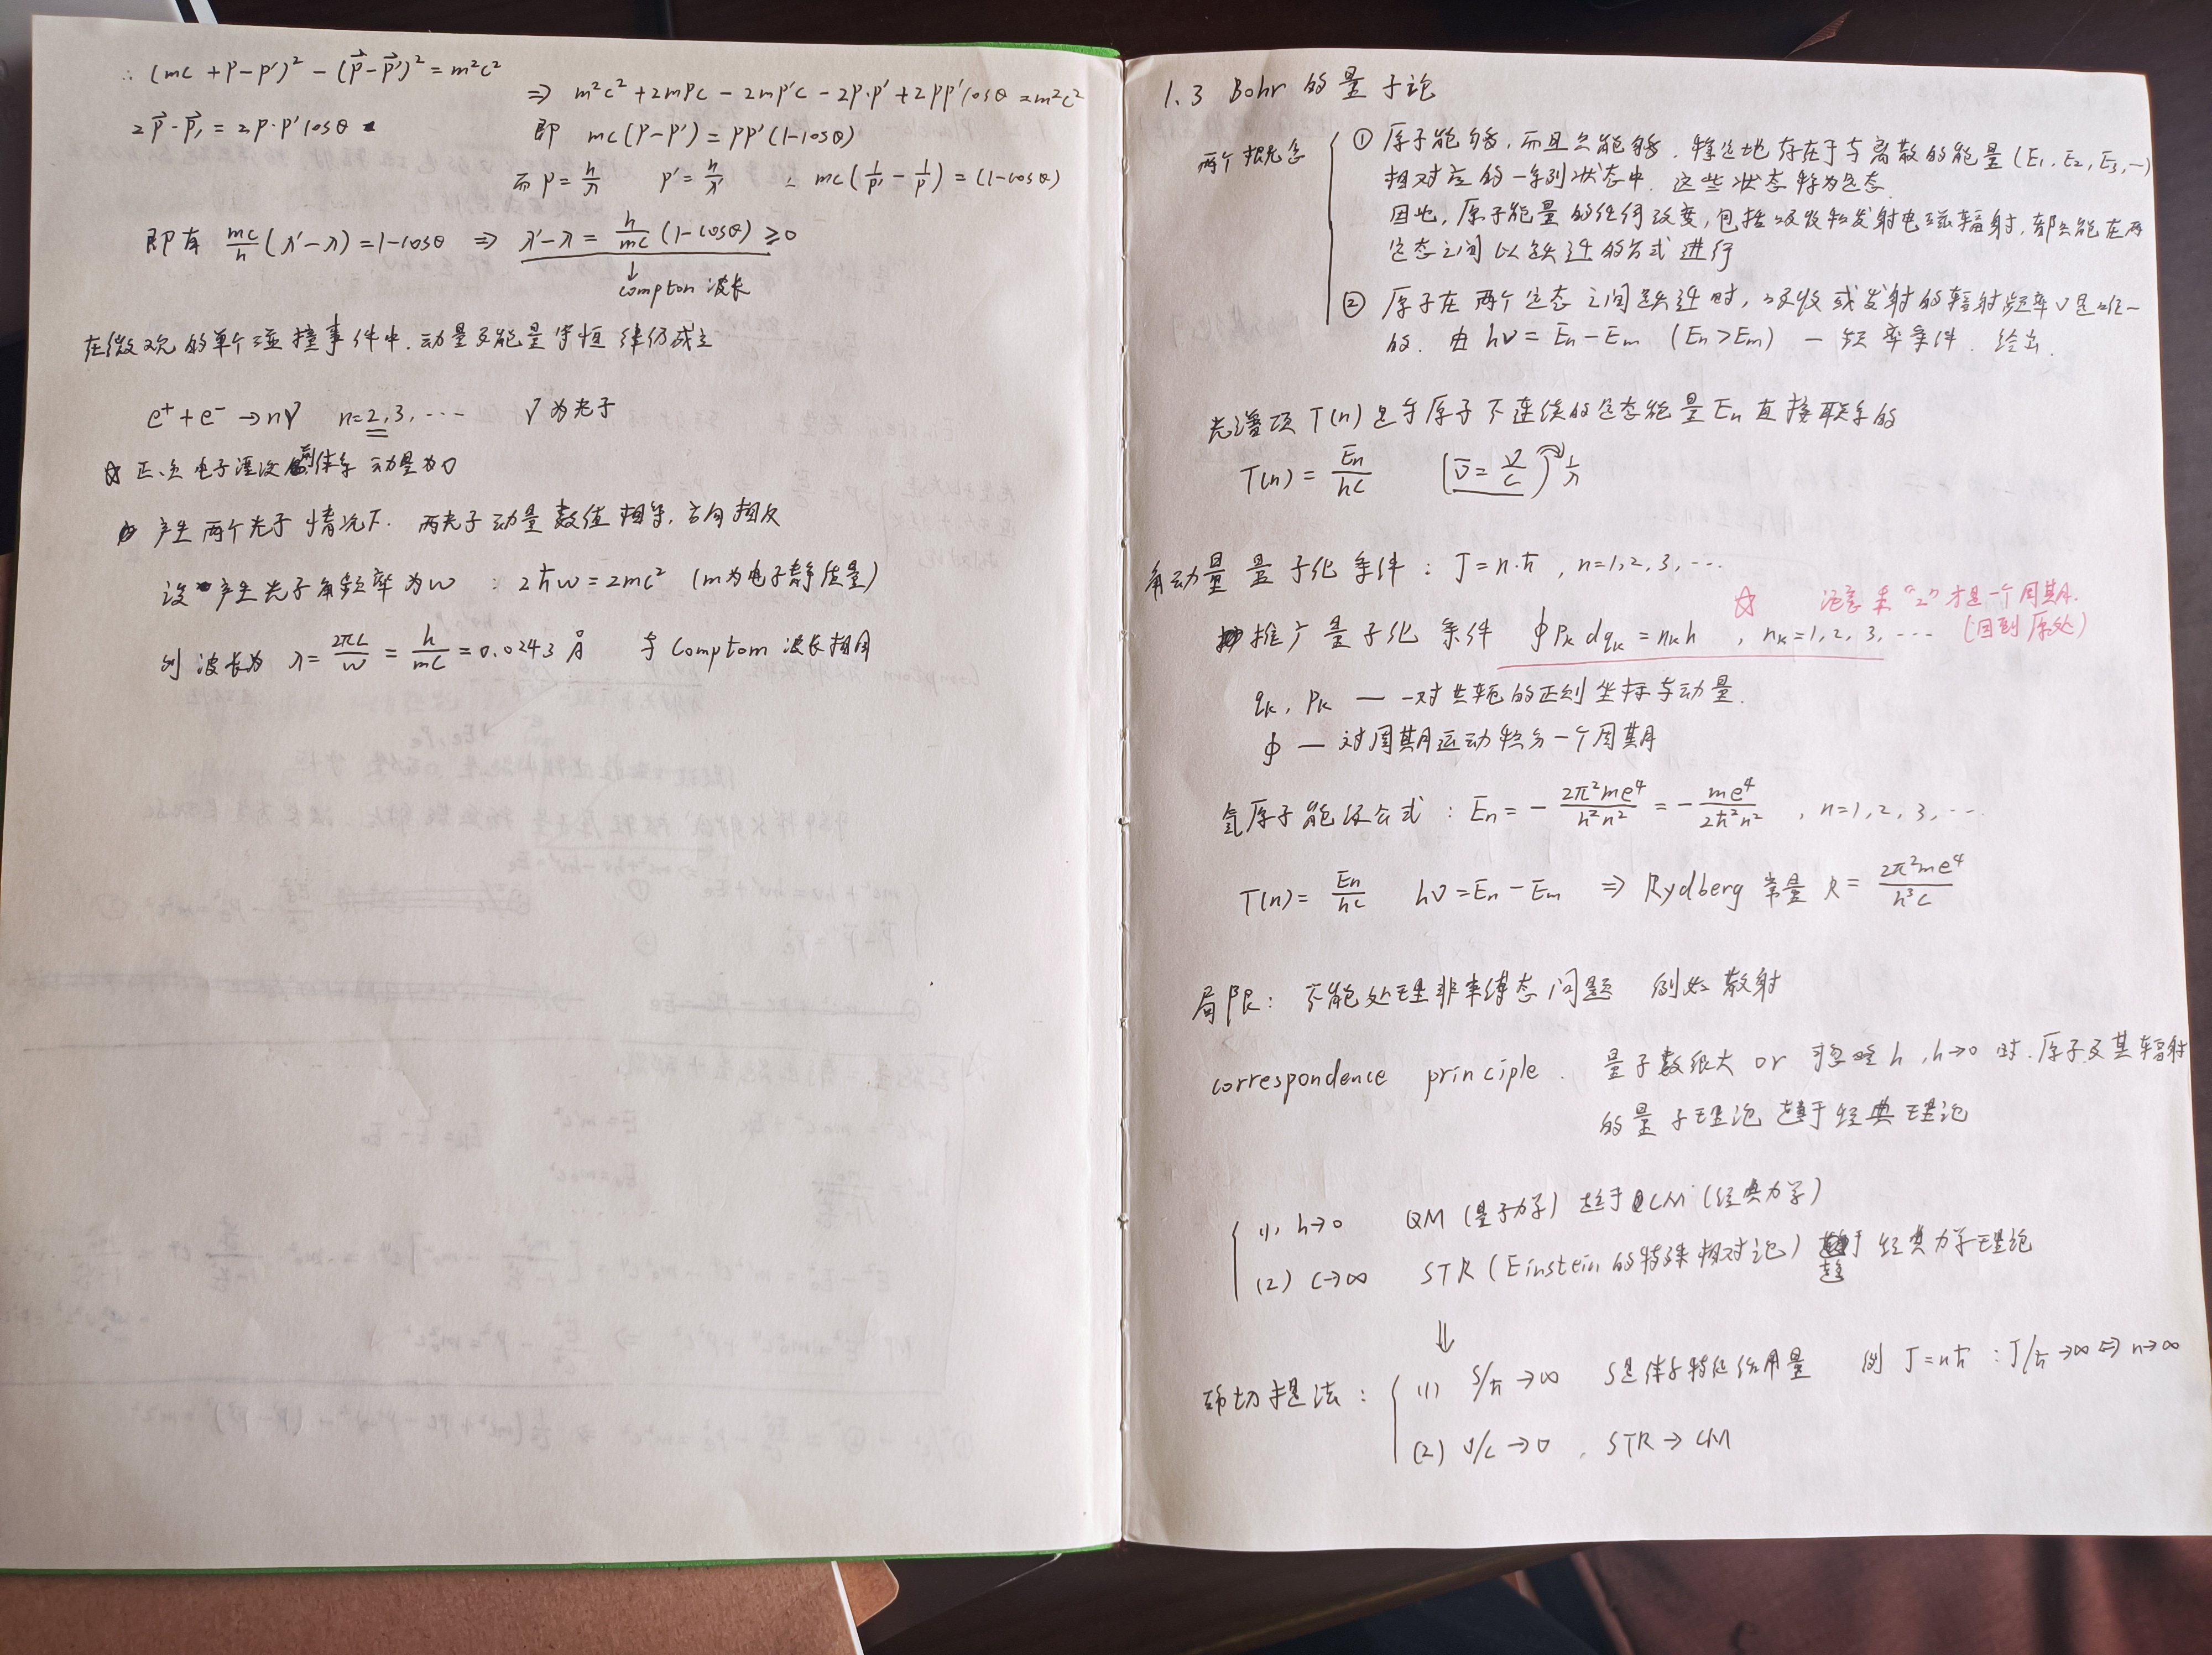 ∴ (mc + p - p')² - (p⃗ - p⃗')² = m²c²
⇒ m²c² + 2mpc - 2mp'c - 2p·p' + 2pp'cosθ = m²c²
2p⃗-p⃗, = 2p·p'cosθ
即 mc(p-p') = pp'(1-cosθ)
而 p = h/λ  p' = h/λ'  ∴ mc(1/p' - 1/p) = (1-cosθ)
即有 mc/h (λ'-λ) = 1-cosθ ⇒ λ'-λ = h/mc (1-cosθ) ≥ 0
↓
compton 波长
在微观的单个碰撞事件中,动量及能量守恒律仍成立
e⁺ + e⁻ → nγ  n=2,3,···  γ为光子
☆ 正、负电子湮没前体系动量为0
产生两个光子情况下.两光子动量数值相等,方向相反
设产生光子角频率为ω : 2ħω = 2mc² (m为电子静质量)
则波长为 λ = 2πc/ω = h/mc = 0.0243 Å  与 Comptom 波长相同
1.3 Bohr 的量子论
两个概念
① 原子能够,而且只能够,稳定地存在于与离散的能量(E₁, E₂, E₃, …)
相对应的一系列状态中.这些状态称为定态.
因此,原子能量的任何改变,包括吸收和发射电磁辐射,都只能在两
定态之间以跃迁的方式进行
② 原子在两个定态之间跃迁时,吸收或发射的辐射频率ν是唯一
的.由 hν = En - Em (En > Em) — 频率条件.给出.
光谱项 T(n) 是与原子不连续的定态能量En直接联系的
T(n) = En/hc  (ν̄ = ν/c) 1/λ
角动量量子化条件 : J = n·ħ , n=1,2,3,···
☆ 注意乘"2"才是一个周期.
(回到原处)
推广量子化条件 ∮ pₖ dqₖ = nₖh , nₖ = 1,2,3,···
qₖ, pₖ — 一对共轭的正则坐标与动量.
∮ — 对周期运动积分一个周期
氢原子能级公式 : En = - 2π²me⁴/h²n² = - me⁴/2ħ²n² , n=1,2,3,···
T(n) = En/hc  hν = En - Em ⇒ Rydberg 常量 R = 2π²me⁴/h³c
局限: 不能处理非束缚态问题 例如散射
correspondence principle. 量子数很大 or 可忽略h,h→0时.原子及其辐射
的量子理论趋于经典理论
(1) h→0 QM(量子力学)趋于CM(经典力学)
(2) c→∞ STR(Einstein的特殊相对论)趋于经典力学理论
⇓
确切提法:
(1) S/ħ →∞ S是体系特征作用量 例 J=nħ : J/ħ →∞ ⇔ n→∞
(2) v/c →0 , STR → CM